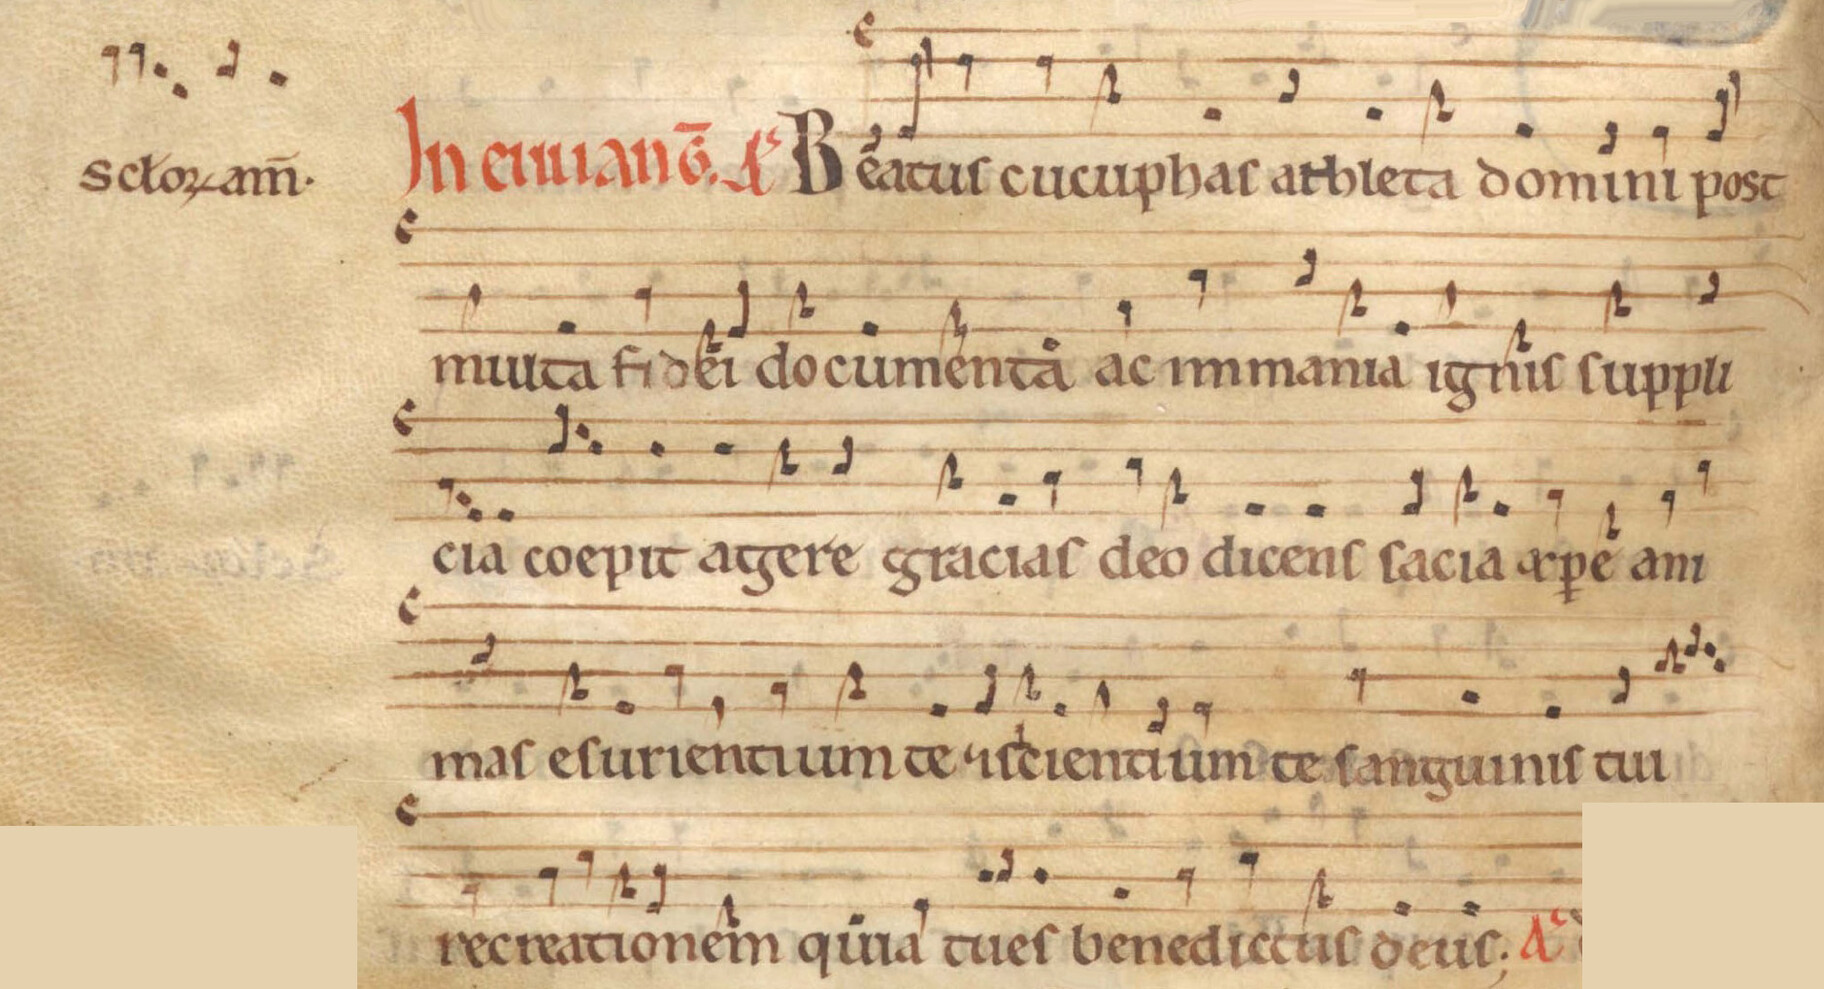 In euuang̅. Aͨ Beatus cucuphas athleta domini post
sc̅loꝝ am̅.
multa fidei documenta ac inmania ignis suppli
cia coepit agere gracias deo dicens sacia xp̅e ani
mas esurientium te ⁊ scientium te sanguinis tui
recreationem quia tu es benedictus deus; Aͨ